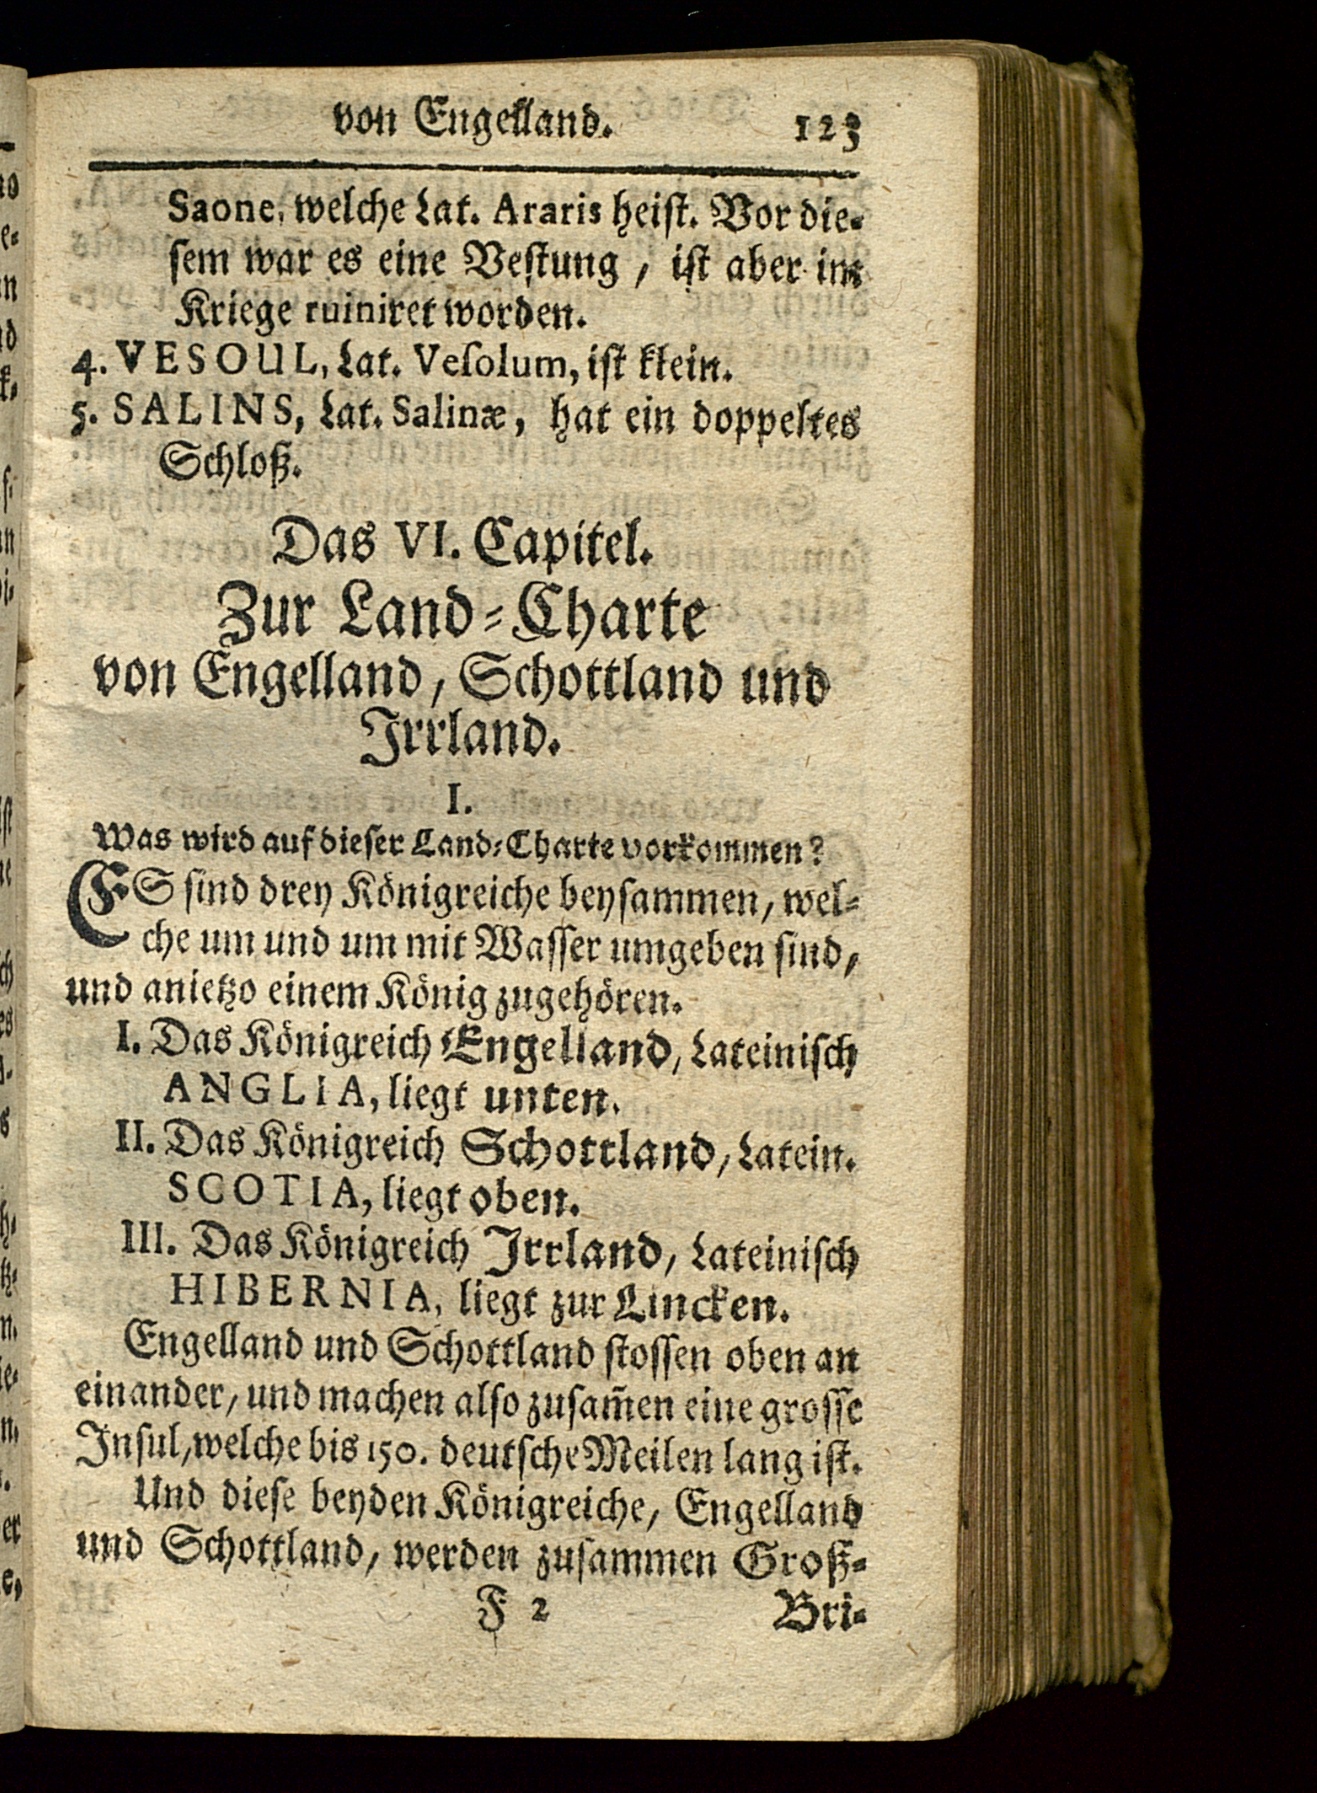 von Engelland. 123
Saone, welche Lat. Araris heist. Vor die-
sem war es eine Vestung / ist aber im
Kriege ruiniret worden.
4. VESOUL, Lat. Vesolum, ist klein.
5. SALINS, Lat. Salinæ, hat ein doppeltes
Schloß.
Das VI. Capitel.
Zur Land-Charte
von Engelland / Schottland und
Irrland.
I.
Was wird auf dieser Land-Charte vorkommen?
ES sind drey Königreiche beysammen / wel-
che um und um mit Wasser umgeben sind /
und anietzo einem König zugehören.
I. Das Königreich Engelland / Lateinisch
ANGLIA, liegt unten.
II. Das Königreich Schottland / Latein.
SCOTIA, liegt oben.
III. Das Königreich Irrland / Lateinisch
HIBERNIA, liegt zur Lincken.
Engelland und Schottland stossen oben an
einander / und machen also zusam̃en eine grosse
Insul / welche bis 150. deutsche Meilen lang ist.
Und diese beyden Königreiche / Engelland
und Schottland / werden zusammen Groß-
F 2 Bri-